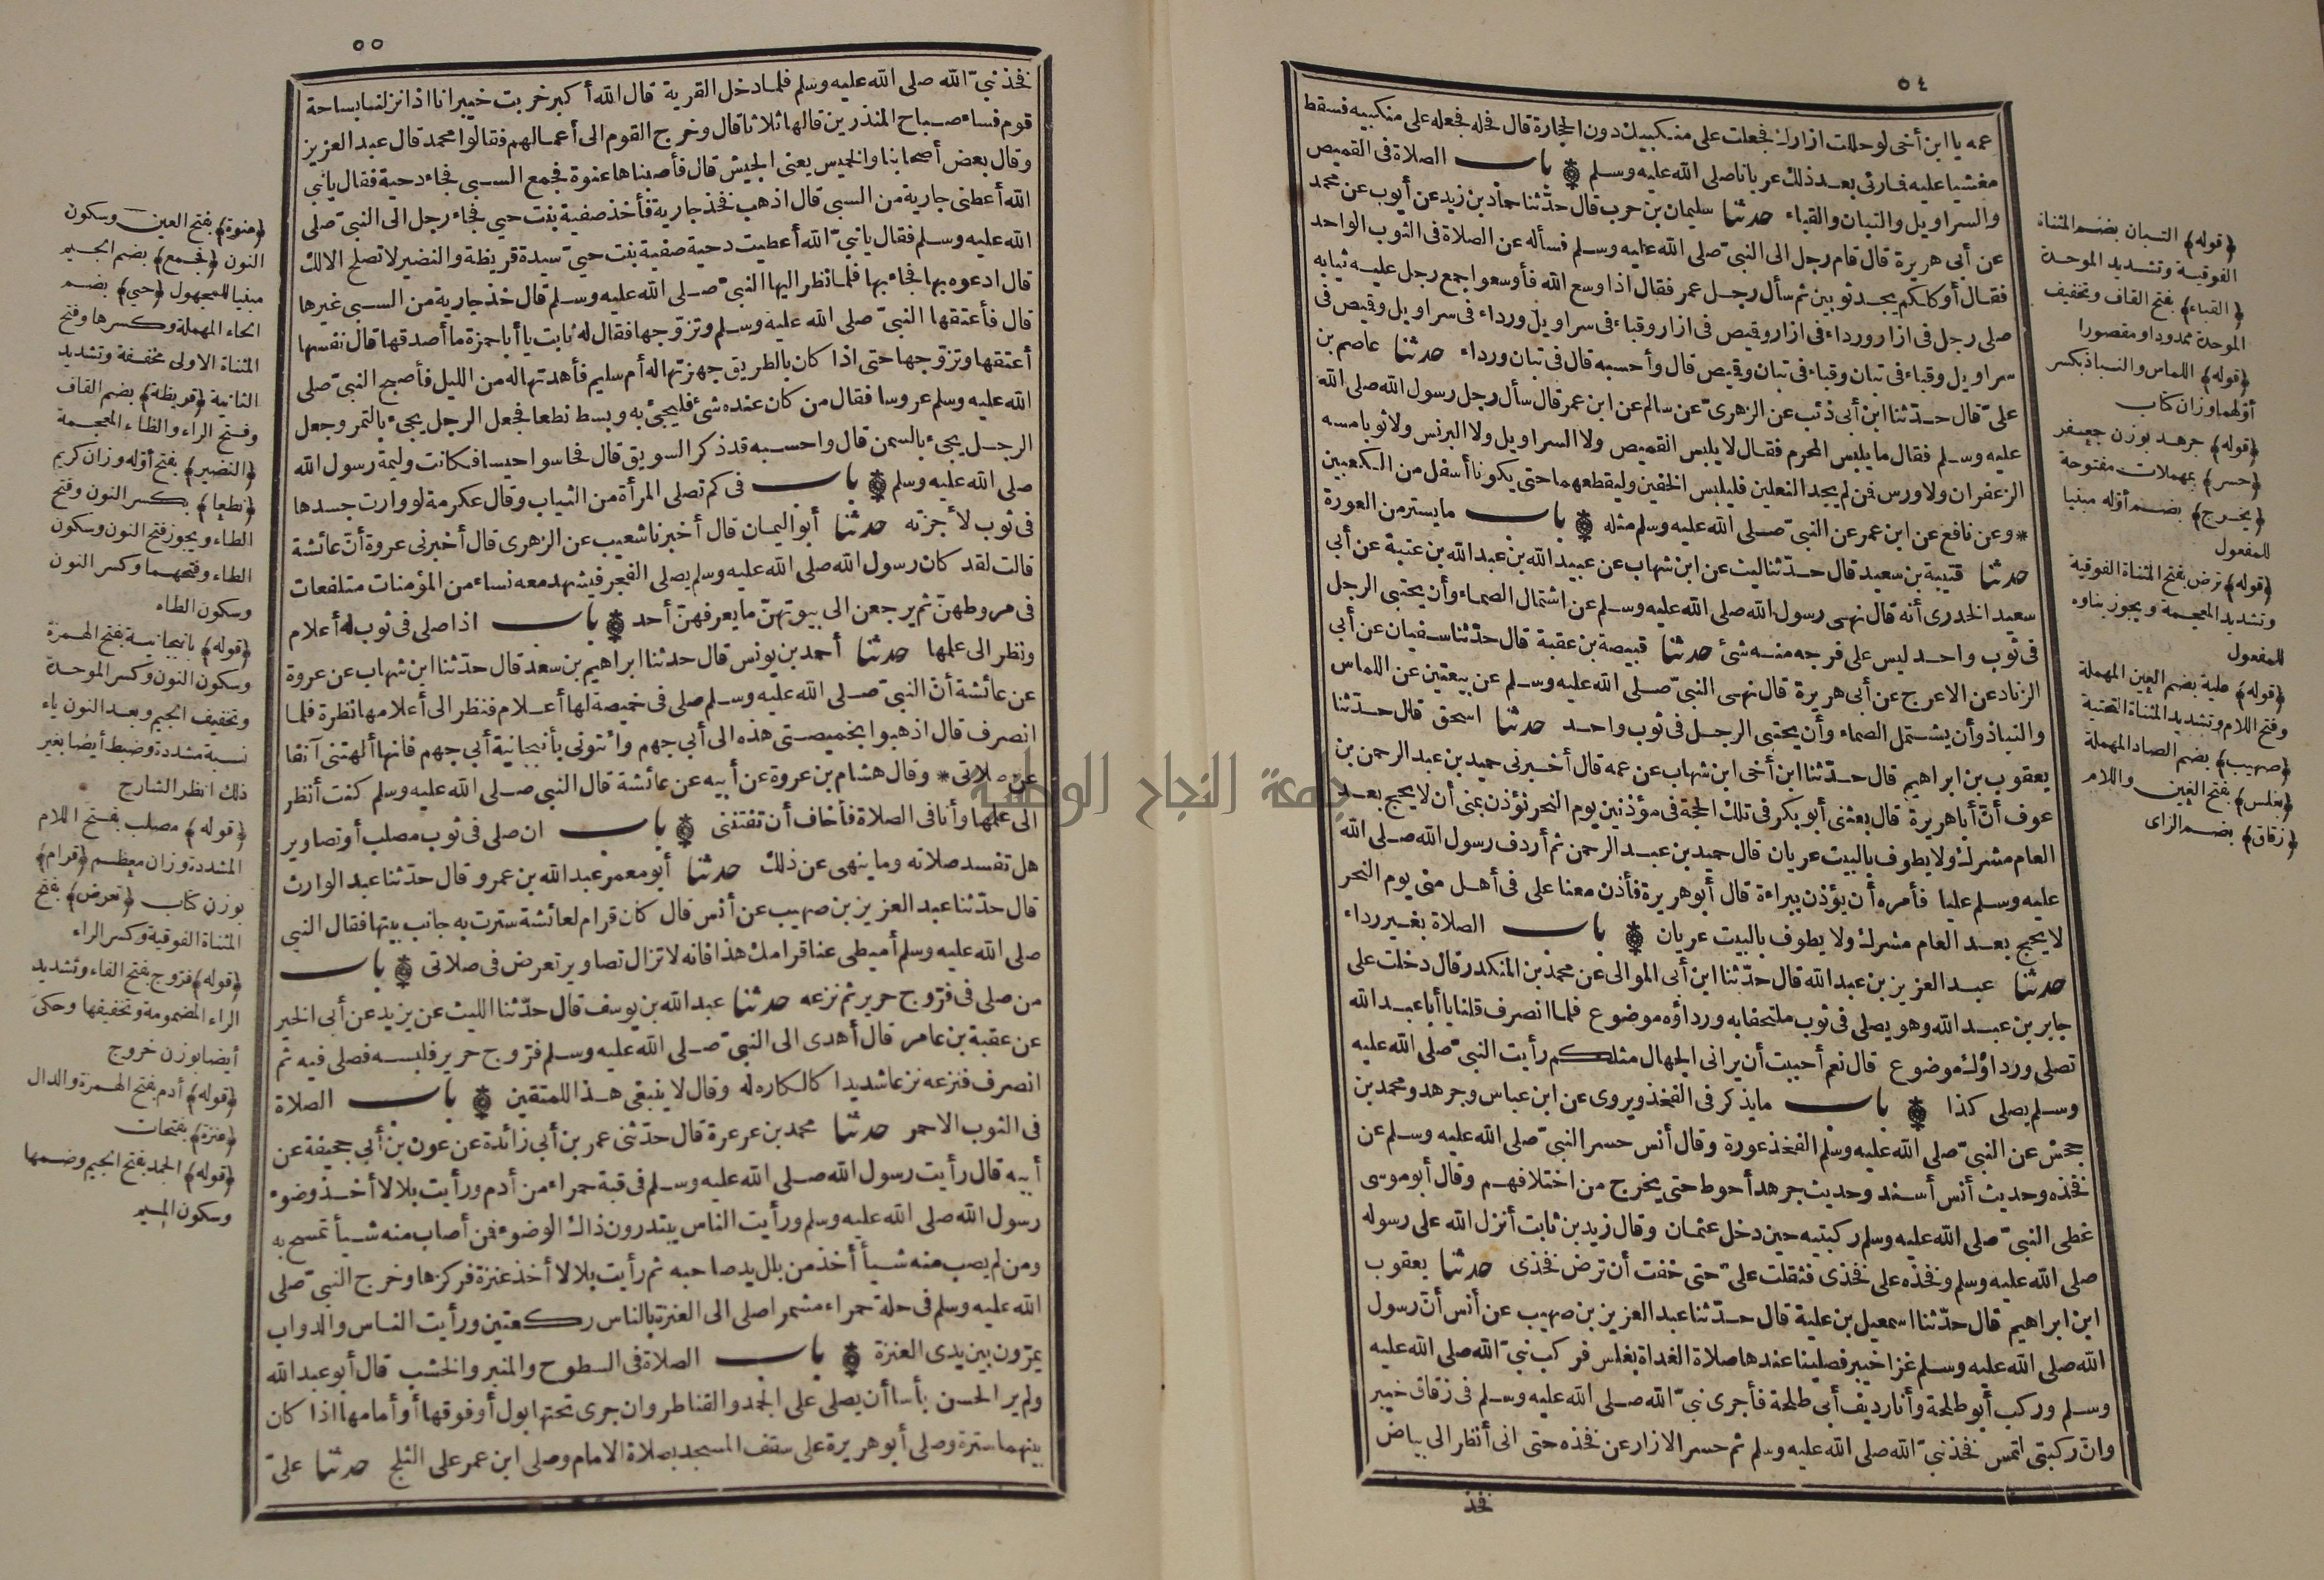 ٥٤
عمه يا ابن أخى لو حللت ازارك فجعلت على منكبيك دون الحجارة قال فحله فجعله على منكبيه فسقط
مغشيا عليه فارئى بعد ذلك عريانا صلى الله عليه وسلم باب الصلاة فى القميص
والسراويل والتبان والقباء حدثنا سليمان بن حرب قال حدّثنا حماد بن زيد عن أيوب عن محمد
عن أبى هريرة قال قام رجل الى النبىّ صلى الله عليه وسلم فسأله عن الصلاة فى الثوب الواحد
فقال أوكلكم يجد ثوبين ثم سأل رجل عمر فقال اذا وسع الله فأوسعوا جمع رجل عليه ثيابه
صلى رجل فى ازار ورداء فى ازار وقميص فى ازار وقباء فى سراويل ورداء فى سراويل وقميص فى
سراويل وقباء فى تبان وقباء فى تبان وقميص قال وأحسبه قال فى تبان ورداء حدثنا عاصم بن
علىّ قال حدّثنا ابن أبى ذئب عن الزهرىّ عن سالم عن ابن عمر قال سأل رجل رسول الله صلى الله
عليه وسلم فقال ما يلبس المحرم فقال لا يلبس القميص ولا السراويل ولا البرنس ولا ثوبا مسه
الزعفران ولا ورس فمن لم يجد النعلين فليلبس الخفين وليقطعهما حتى يكونا أسفل من الكعبين
* وعن نافع عن ابن عمر عن النبىّ صلى الله عليه وسلم مثله باب ما يستر من العورة
حدثنا قتيبة بن سعيد قال حدّثنا ليث عن ابن شهاب عن عبيد الله بن عبد الله بن عتبة عن أبى
سعيد الخدرى أنه قال نهى رسول الله صلى الله عليه وسلم عن اشتمال الصماء وأن يحتبى الرجل
فى ثوب واحد ليس على فرجه منه شئ حدثنا قبيصة بن عقبة قال حدّثنا سفيان عن أبى
الزناد عن الاعرج عن أبى هريرة قال نهى النبىّ صلى الله عليه وسلم عن بيعتين عن اللماس
والنباذ وأن يشتمل الصماء وأن يحتبى الرجل فى ثوب واحد حدثنا اسحق قال حدّثنا
يعقوب بن ابراهيم قال حدّثنا ابن أخى ابن شهاب عن عمه قال أخبرنى حميد بن عبد الرحمن بن
عوف أنّ أبا هريرة قال بعثنى أبو بكر فى تلك الحجة فى مؤذنين يوم النحر نؤذن بمنى أن لا يحج بعد
العام مشرك ولا يطوف بالبيت عريان قال حميد بن عبد الرحمن ثم أردف رسول الله صلى الله
عليه وسلم عليا فأمره أن يؤذن ببراءة قال أبو هريرة فأذن معنا على فى أهل منى يوم النحر
لا يحج بعد العام مشرك ولا يطوف بالبيت عريان باب الصلاة بغير رداء
حدثنا عبد العزيز بن عبد الله قال حدّثنا ابن أبى الموالى عن محمد بن المنكدر قال دخلت على
جابر بن عبد الله وهو يصلى فى ثوب ملتحفا به ورداؤه موضوع فلما انصرف قلنا يا أبا عبد الله
تصلى ورداؤك موضوع قال نعم أحببت أن يرانى الجهال مثلكم رأيت النبىّ صلى الله عليه
وسلم يصلى كذا باب ما يذكر فى الفخذ ويروى عن ابن عباس وجرهد ومحمد بن
جحش عن النبىّ صلى الله عليه وسلم الفخذ عورة وقال أنس حسر النبىّ صلى الله عليه وسلم عن
فخذه وحديث أنس أسند وحديث جرهد أحوط حتى يخرج من اختلافهم وقال أبو موسى
غطى النبىّ صلى الله عليه وسلم ركبتيه حين دخل عثمان وقال زيد بن ثابت أنزل الله على رسوله
صلى الله عليه وسلم وفخذه على فخذى فثقلت علىّ حتى خفت أن ترض فخذى حدثنا يعقوب
ابن ابراهيم قال حدّثنا اسمعيل بن علية قال حدّثنا عبد العزيز بن صهيب عن أنس أنّ رسول
الله صلى الله عليه وسلم غزا خيبر فصلينا عندها صلاة الغداة بغلس فركب نبىّ الله صلى الله عليه
وسلم وركب أبو طلحة وأنا رديف أبى طلحة فأجرى نبىّ الله صلى الله عليه وسلم فى زقاق خيبر
وانّ ركبتى لتمس فخذ نبىّ الله صلى الله عليه وسلم ثم حسر الازار عن فخذه حتى انى أنظر الى بياض
فخذ
﴿قوله﴾ التبان بضم المثناة
الفوقية وتشديد الموحدة
﴿القباء﴾ بفتح القاف وتخفيف
الموحدة ممدودا ومقصورا
﴿قوله﴾ اللماس والنباذ بكسر
أوّلهما وزان كتاب
﴿قوله﴾ جرهد بوزن جعفر
﴿حسر﴾ بمهملات مفتوحة
﴿يخرج﴾ بضم أوّله مبنيا
للمفعول
﴿قوله﴾ ترض بفتح المثناة الفوقية
وتشديد المعجمة ويجوز بناوه
للمفعول
﴿قوله﴾ علية بضم العين المهملة
وفتح اللام وتشديد المثناة التحتية
﴿صهيب﴾ بضم الصاد المهملة
﴿بغلس﴾ بفتح الغين واللام
﴿زقاق﴾ بضم الزاى
٥٥
فخذ نبىّ الله صلى الله عليه وسلم فلما دخل القرية قال الله أكبر خربت خيبر انا اذا نزلنا بساحة
قوم فساء صباح المنذرين قالها ثلاثا قال وخرج القوم الى أعمالهم فقالوا محمد قال عبد العزيز
وقال بعض أصحابنا والخميس يعنى الجيش قال فأصبناها عنوة فجمع السبى فجاء دحية فقال يا نبى
الله أعطنى جارية من السبى قال اذهب فخذ جارية فأخذ صفية بنت حيى فجاء رجل الى النبىّ صلى
الله عليه وسلم فقال يا نبىّ الله أعطيت دحية صفية بنت حيىّ سيدة قريظة والنضير لا تصلح الا لك
قال ادعوه بها فجاء بها فلما نظر اليها النبىّ صلى الله عليه وسلم قال خذ جارية من السبى غيرها
قال فأعتقها النبىّ صلى الله عليه وسلم وتزوّجها فقال له ثابت يا أبا حمزة ما أصدقها قال نفسها
أعتقها وتزوّجها حتى اذا كان بالطريق جهزتها له أم سليم فأهدتها له من الليل فأصبح النبىّ صلى
الله عليه وسلم عروسا فقال من كان عنده شئ فليجئ به وبسط نطعا فجعل الرجل يجىء بالتمر وجعل
الرجل يجىء بالسمن قال واحسبه قد ذكر السويق قال فحاسوا حيسا فكانت وليمة رسول الله
صلى الله عليه وسلم باب فى كم تصلى المرأة من الثياب وقال عكرمة لو وارت جسدها
فى ثوب لأجزته حدثنا أبو اليمان قال أخبرنا شعيب عن الزهرى قال أخبرنى عروة أنّ عائشة
قالت لقد كان رسول الله صلى الله عليه وسلم يصلى الفجر فيشهد معه نساء من المؤمنات متلفعات
فى مروطهنّ ثم يرجعن الى بيوتهنّ ما يعرفهنّ أحد باب اذا صلى فى ثوب له أعلام
ونظر الى علمها حدثنا أحمد بن يونس قال حدثنا ابراهيم بن سعد قال حدّثنا ابن شهاب عن عروة
عن عائشة أنّ النبىّ صلى الله عليه وسلم صلى فى خميصة لها أعلام فنظر الى أعلامها نظرة فلما
انصرف قال اذهبوا بخميصتى هذه الى أبى جهم وائتونى بأنبجانية أبى جهم فانها ألهتنى آنفا
عن صلاتى * وقال هشام بن عروة عن أبيه عن عائشة قال النبى صلى الله عليه وسلم كنت أنظر
الى علمها وأنا فى الصلاة فأخاف أن تفتننى باب ان صلى فى ثوب مصلب أو تصاوير
هل تفسد صلاته وما ينهى عن ذلك حدثنا أبو معمر عبد الله بن عمرو قال حدّثنا عبد الوارث
قال حدّثنا عبد العزيز بن صهيب عن أنس قال كان قرام لعائشة سترت به جانب بيتها فقال النبى
صلى الله عليه وسلم أميطى عنا قرامك هذا فانه لا تزال تصاوير تعرض فى صلاتى باب
من صلى فى فرّوج حرير ثم نزعه حدثنا عبد الله بن يوسف قال حدّثنا الليث عن يزيد عن أبى الخير
عن عقبة بن عامر قال أهدى الى النبىّ صلى الله عليه وسلم فرّوج حرير فلبسه فصلى فيه ثم
انصرف فنزعه نزعا شديدا كالكاره له وقال لا ينبغى هذا للمتقين باب الصلاة
فى الثوب الاحمر حدثنا محمد بن عرعرة قال حدّثنى عمر بن أبى زائدة عن عون بن أبى جحيفة عن
أبيه قال رأيت رسول الله صلى الله عليه وسلم فى قبة حمراء من أدم ورأيت بلالا أخذ وضوء
رسول الله صلى الله عليه وسلم ورأيت الناس يبتدرون ذاك الوضوء فمن أصاب منه شيأ تمسح به
ومن لم يصب منه شيأ أخذ من بلل يد صاحبه ثم رأيت بلالا أخذ عنزة فركزها وخرج النبىّ صلى
الله عليه وسلم فى حلة حمراء مشمرا صلى الى العنزة بالناس ركعتين ورأيت الناس والدواب
يمرّون بين يدى العنزة باب الصلاة فى السطوح والمنبر والخشب قال أبو عبد الله
ولم ير الحسن بأسا أن يصلى على الجمد والقناطر وان جرى تحتها بول أو فوقها أو أمامها اذا كان
بينهما سترة وصلى أبو هريرة على سقف المسجد بصلاة الامام وصلى ابن عمر على الثلج حدثنا علىّ
﴿عنوة﴾ بفتح العين وسكون
النون ﴿فجمع﴾ بضم الجيم
مبنيا للمجهول ﴿حيى﴾ بضم
الحاء المهملة وكسرها وفتح
المثناة الاولى مخففة وتشديد
الثانية ﴿قريظة﴾ بضم القاف
وفتح الراء والظاء المعجمة
﴿النضير﴾ بفتح أوّله وزان كريم
﴿نطعا﴾ بكسر النون وفتح
الطاء ويجوز فتح النون وسكون
الطاء وفتحهما وكسر النون
وسكون الطاء
﴿قوله﴾ بانبجانية بفتح الهمزة
وسكون النون وكسر الموحدة
وتخفيف الجيم وبعد النون ياء
نسبة مشددة وضبط أيضا بغير
ذلك انظر الشارح
﴿قوله﴾ مصلب بفتح اللام
المشددة وزان معظم ﴿قرام﴾
بوزن كتاب ﴿تعرض﴾ بفتح
المثناة الفوقية وكسر الراء
﴿قوله﴾ فرّوج بفتح الفاء وتشديد
الراء المضمومة وتخفيفها وحكى
أيضا بوزن خروج
﴿قوله﴾ أدم بفتح الهمزة والدال
﴿عنزة﴾ بفتحات
﴿قوله﴾ الجمد بفتح الجيم وضمها
وسكون الميم
جامعة النجاح الوطنية